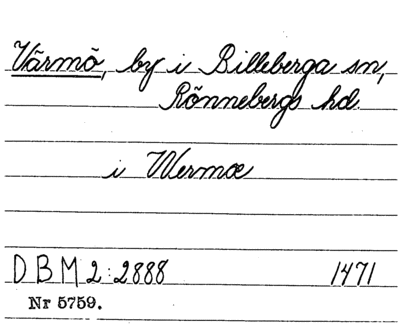 Värmö, by i Billeberga sn,
Rönnebergs hd.
i Wermæ
D B M 2:2888 1471
Nr 5759.